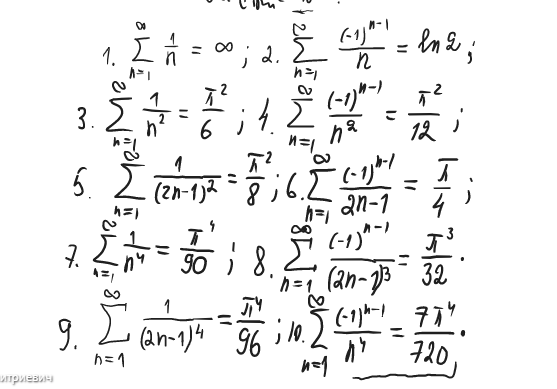 1. ∑_{n=1}^{∞} 1/n = ∞ ; 2. ∑_{n=1}^{∞} (-1)^{n-1}/n = ln 2 ;
3. ∑_{n=1}^{∞} 1/n^2 = π^2/6 ; 4. ∑_{n=1}^{∞} (-1)^{n-1}/n^2 = π^2/12 ;
5. ∑_{n=1}^{∞} 1/(2n-1)^2 = π^2/8 ; 6. ∑_{n=1}^{∞} (-1)^{n-1}/2n-1 = π/4 ;
7. ∑_{n=1}^{∞} 1/n^4 = π^4/90 ; 8. ∑_{n=1}^{∞} (-1)^{n-1}/(2n-1)^3 = π^3/32 .
9. ∑_{n=1}^{∞} 1/(2n-1)^4 = π^4/96 ; 10. ∑_{n=1}^{∞} (-1)^{n-1}/n^4 = 7π^4/720 .
итриевич